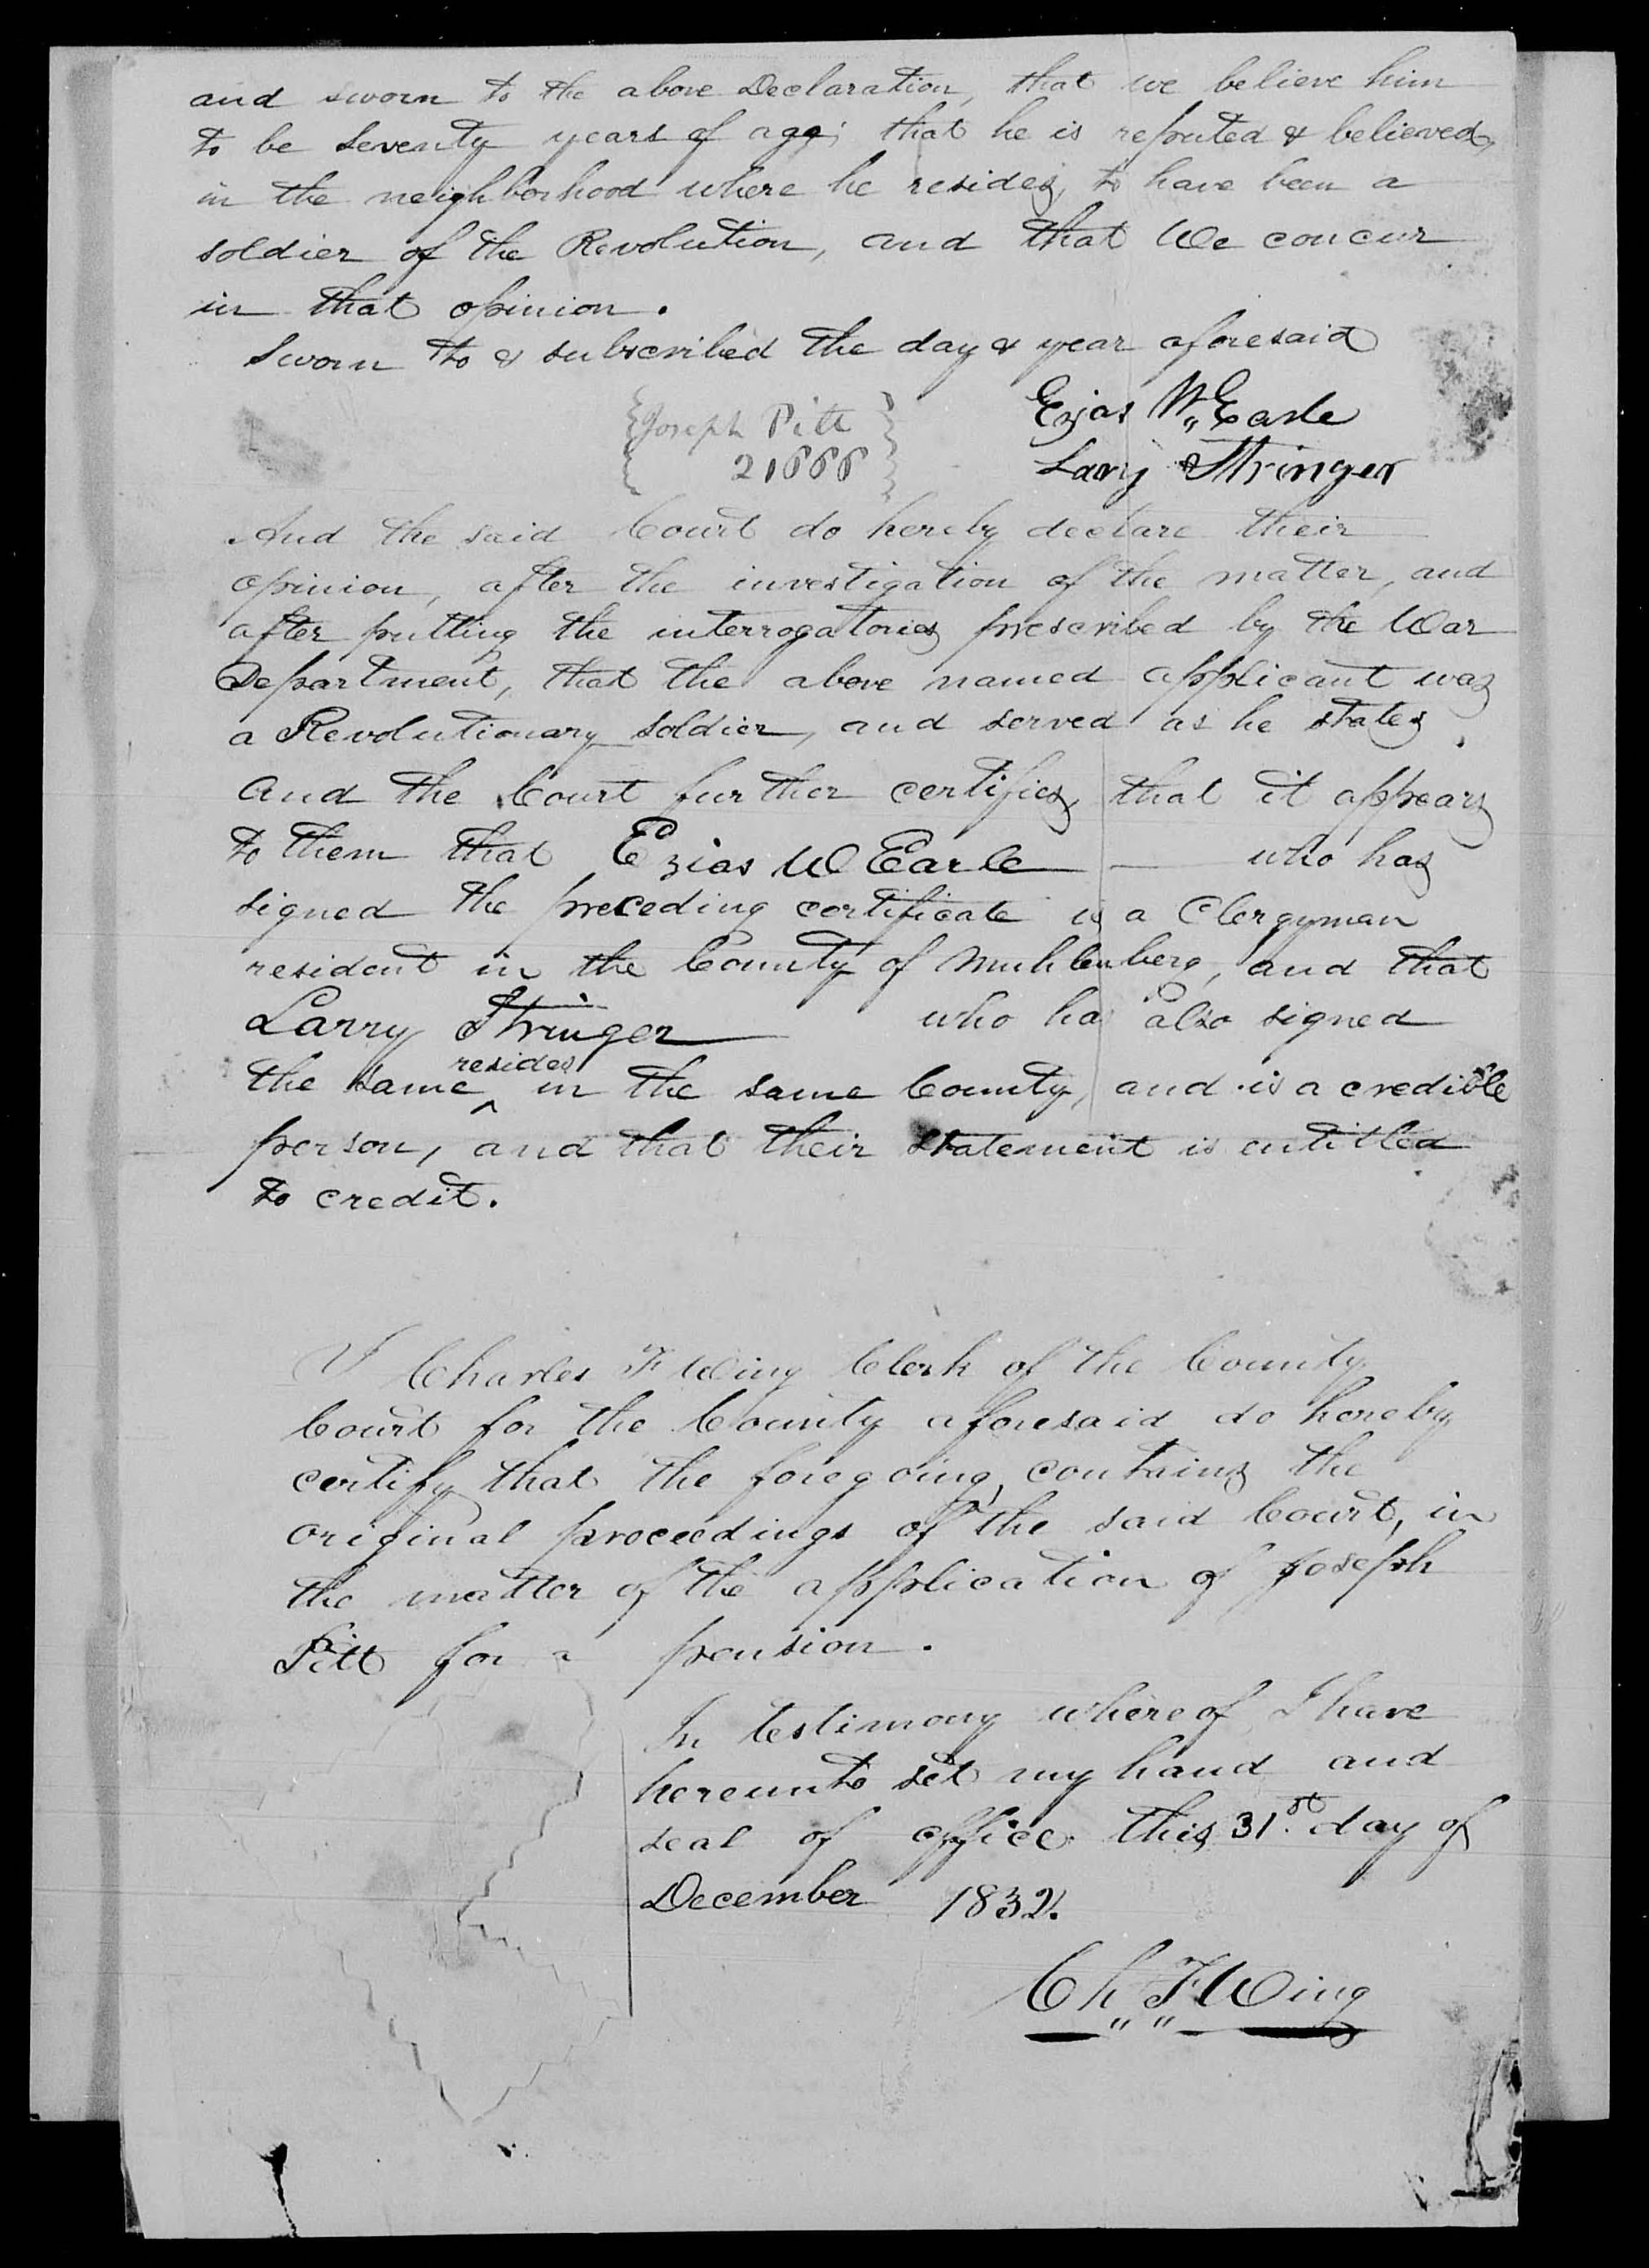 and sworn to the above Declaration, that we believe him
to be Seventy years of age; that he is reputed & believed,
in the neighborhood where he resides, to have been a
soldier of the Revolution, and that We concur
in that opinion.
Sworn to & subscribed the day & year aforesaid
Ezias W. Earle
Joseph Pitt
21666
Larry Stringer
And the said Court do hereby declare their
opinion, after the investigation of the matter, and
after putting the interrogatories prescribed by the War
Department, that the above named applicant was
a Revolutionary soldier, and served as he states.
And the Court further certifies, that it appears
to them that Ezias W Earle — who has
signed the preceding certificate is a Clergyman
resident in the County of Muhlenberg, and that
Larry Stringer who has also signed
the same ^resides in the same County, and is a credible
person, and that their statement is entitled
to credit.
I Charles F Wing Clerk of the County
Court for the County aforesaid do hereby
certify that the foregoing, contains the
original proceedings of the said Court, in
the matter of the application of Joseph
Pitt for a pension.
In testimony whereof, I have
hereunto set my hand and
seal of office this 31st day of
December 1832.
Ch,, F,, Wing